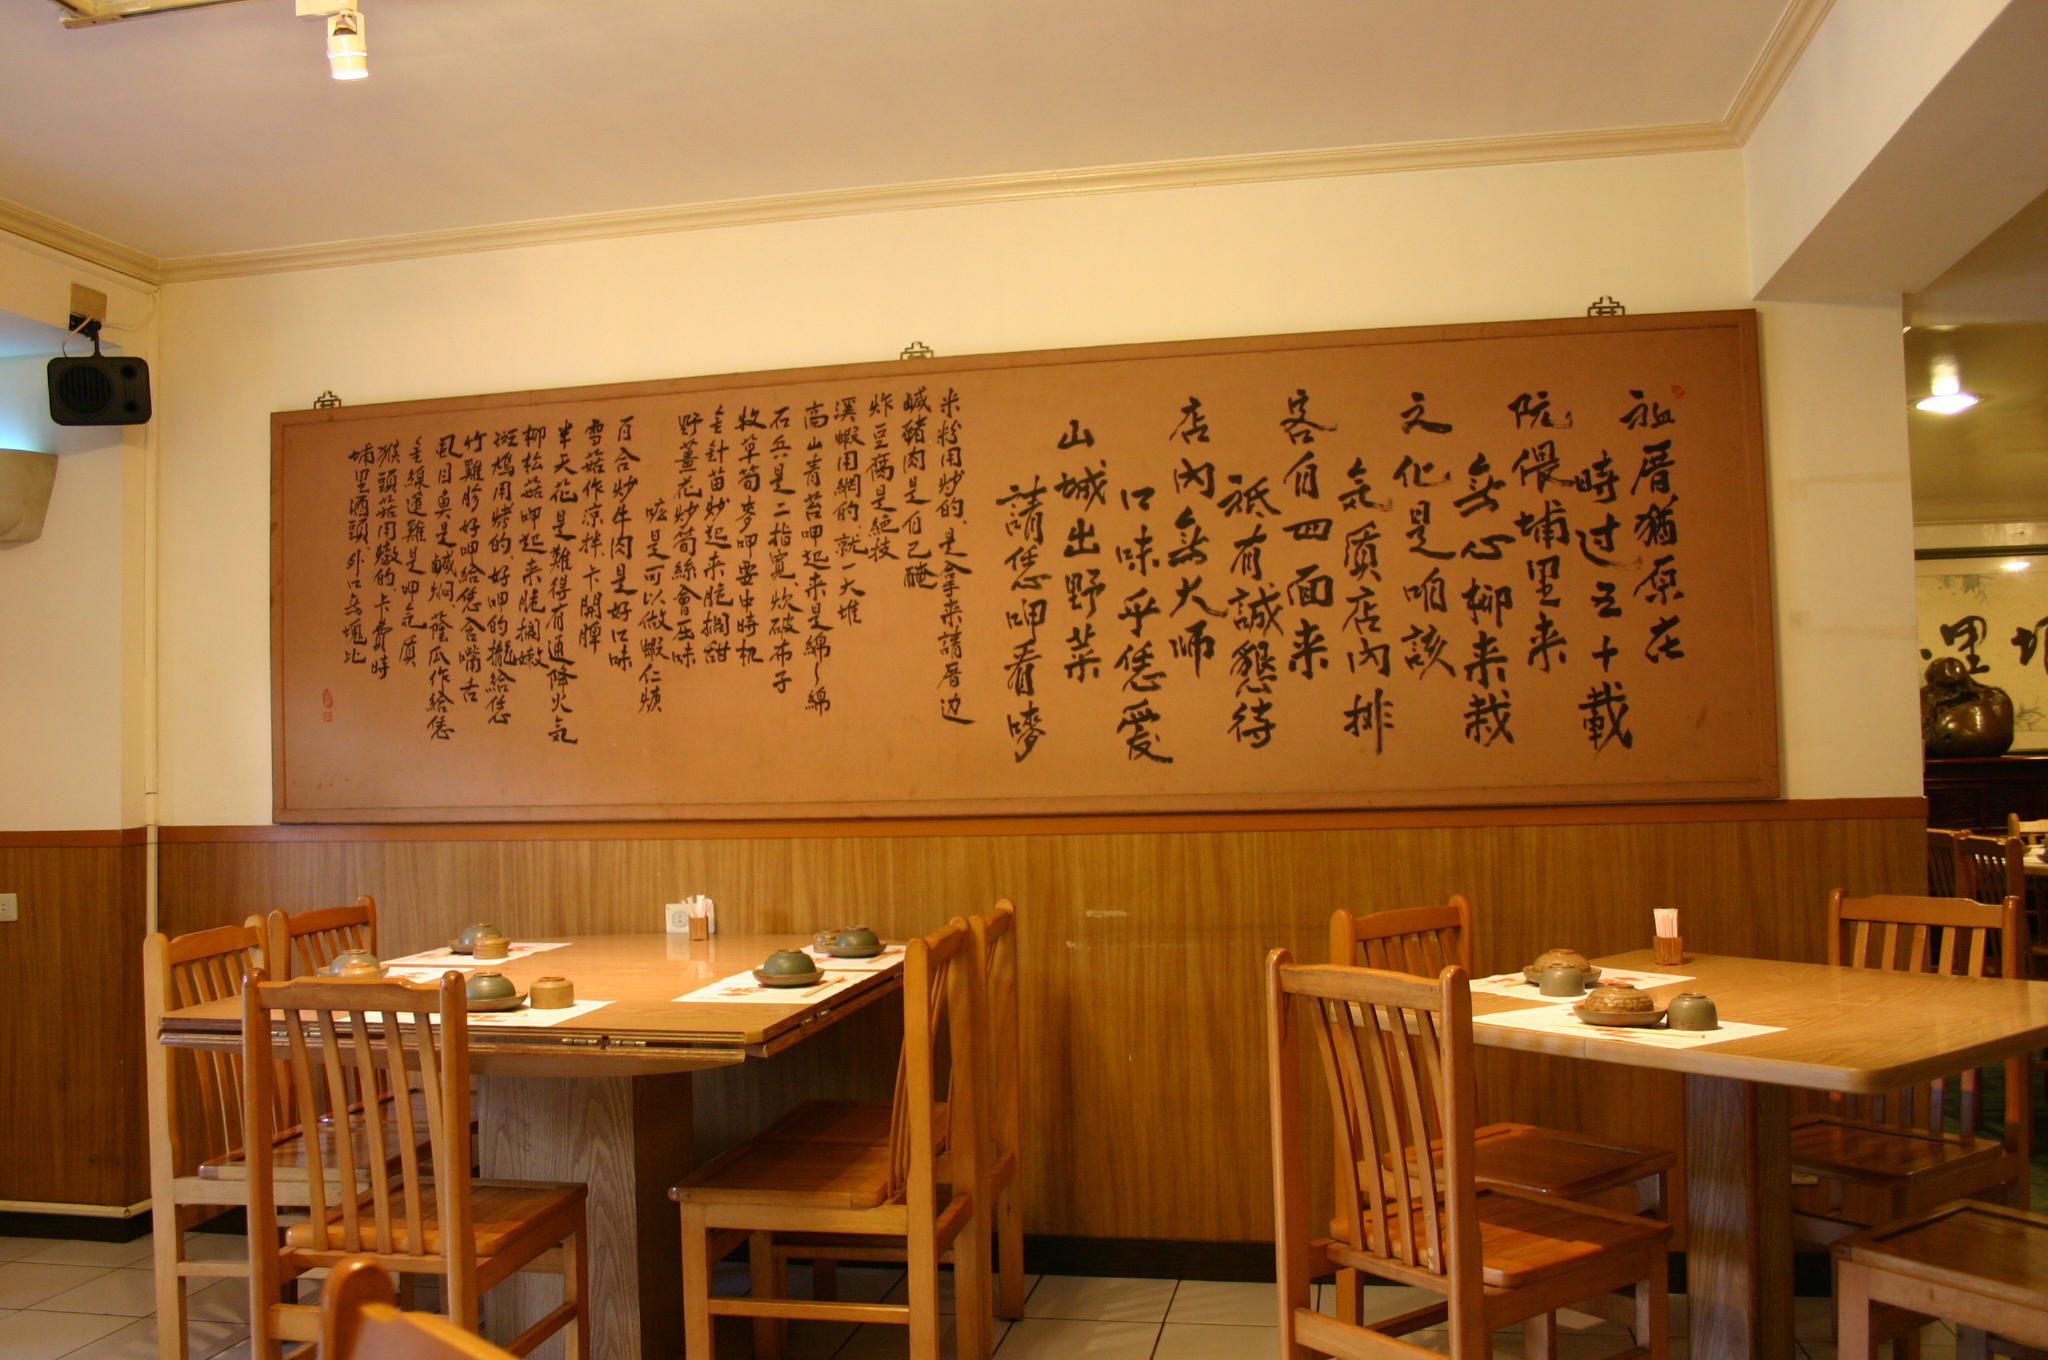 祖厝猶原在
時过五十載
阮偎埔里來
無心柳來栽
文化是咱該
氣質店內排
客自四面來
祗有誠懇待
店內無大师
口味乎恁愛
山城出野菜
請恁呷看嘜
米粉用炒的、是拿來請厝边
鹹豬肉是自己醃
炸豆腐是絕技
溪蝦用網的、就一大堆
高山青苔呷起來是綿綿
石蚵是二指寬、炊破布子
牧草筍麥呷要虫時机
金針苗炒起來脆擱甜
野薑花炒筍絲會压味
嘛是可以做蝦仁煐
百合炒牛肉是好口味
雪菇作涼拌、卡開脾
半天花是難得有通降火気
柳松菇呷起來脆擱嫩
斑鳩用烤的、好呷的攏給恁
竹雞胗好呷給恁含嘴舌
虱目魚是鹹焖、蔭瓜作給恁
金線蓮雞是呷気質
猴頭菇用燉的卡費時
埔里酒頭、外口無塊比
里 埔